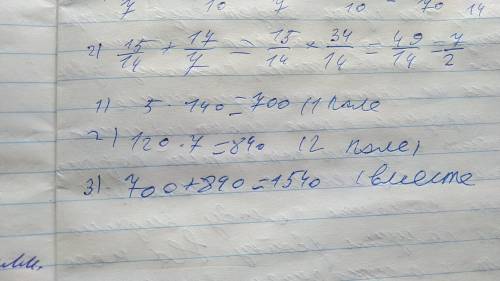 7 10 7 10 = 70 14
2) 15/14 + 17/7 = 15/14 + 34/14 = 49/14 = 7/2
1) 5 · 140 = 700 (1 поле
2) 120 · 7 = 840 (2 поле)
3) 700 + 840 = 1540 (вместе
мм.